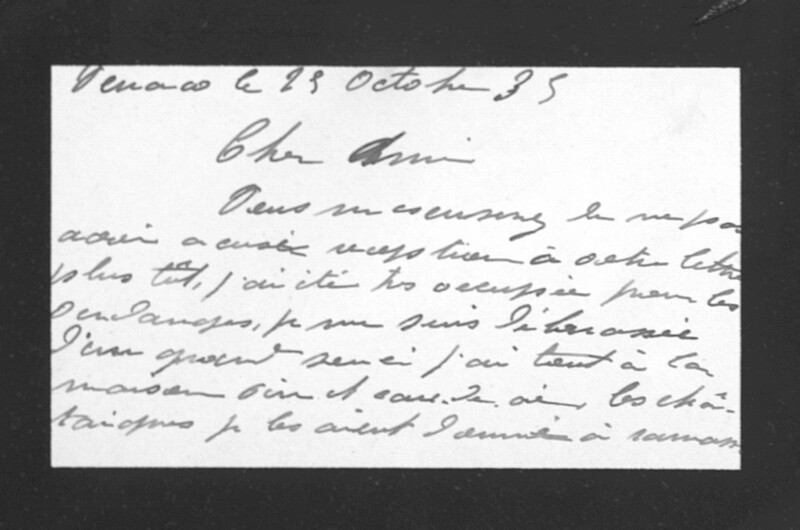 Penaco le 25 Octobre 35
Cher Ami
Vous m'escuserez de ne pas
avoir acusée reception à votre lettre
plus tôt, j'ai été trs occupée pour les
vendanges, je me suis déborassée
d'un grand souci j'ai tout à la
maison vin et eau-de-vie, les châ-
taignes je les avait donnée à ramass